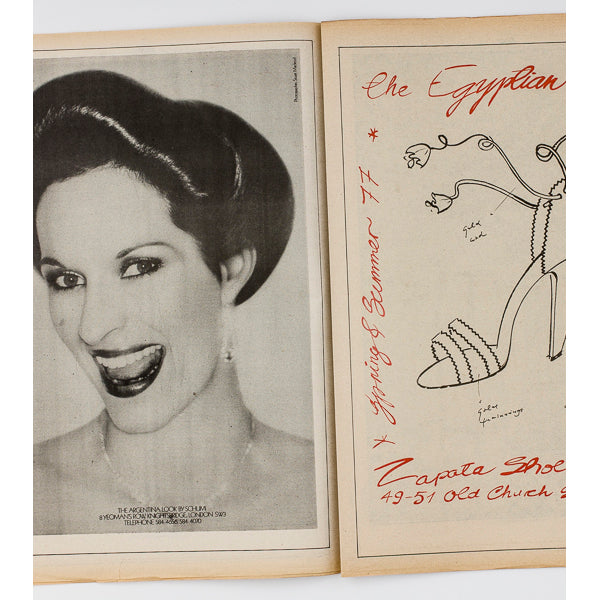 THE ARGENTINA LOOK BY SCHUMI
8 YEOMAN'S ROW, KNIGHTSBRIDGE, LONDON SW3
TELEPHONE 584 4656/584 4020
the Egyptian
* Spring & Summer 77 *
gold
cord
Zapata Shoe
49-51 Old Church